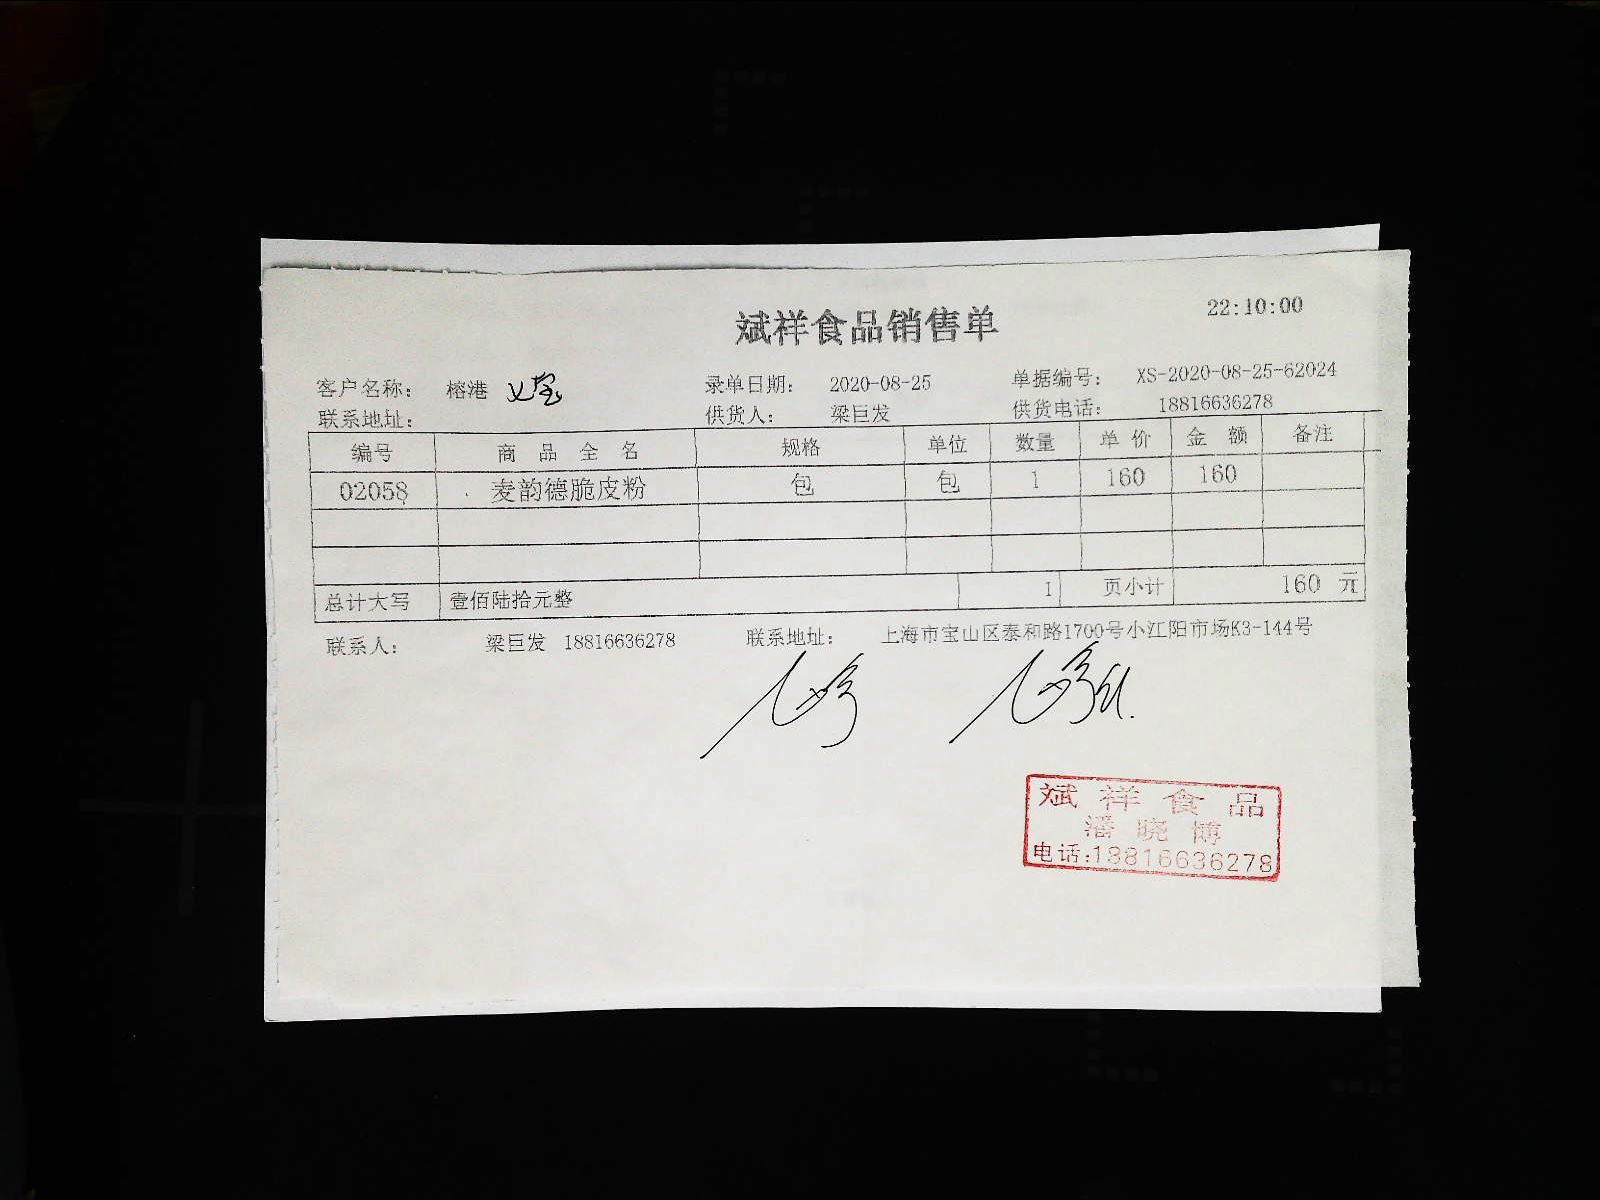 22:10:00
斌祥食品销售单
客户名称： 榕港 录单日期： 2020-08-25 单据编号： XS-2020-08-25-62024
联系地址： 供货人： 梁巨发 供货电话： 18816636278
编号 商品全名 规格 单位 数量 单价 金额 备注
02058 麦韵德脆皮粉 包 包 1 160 160
总计大写 壹佰陆拾元整 1 页小计 160 元
联系人： 梁巨发 18816636278 联系地址： 上海市宝山区泰和路1700号小江阳市场K3-144号
斌祥食品
潘晓博
电话:18816636278